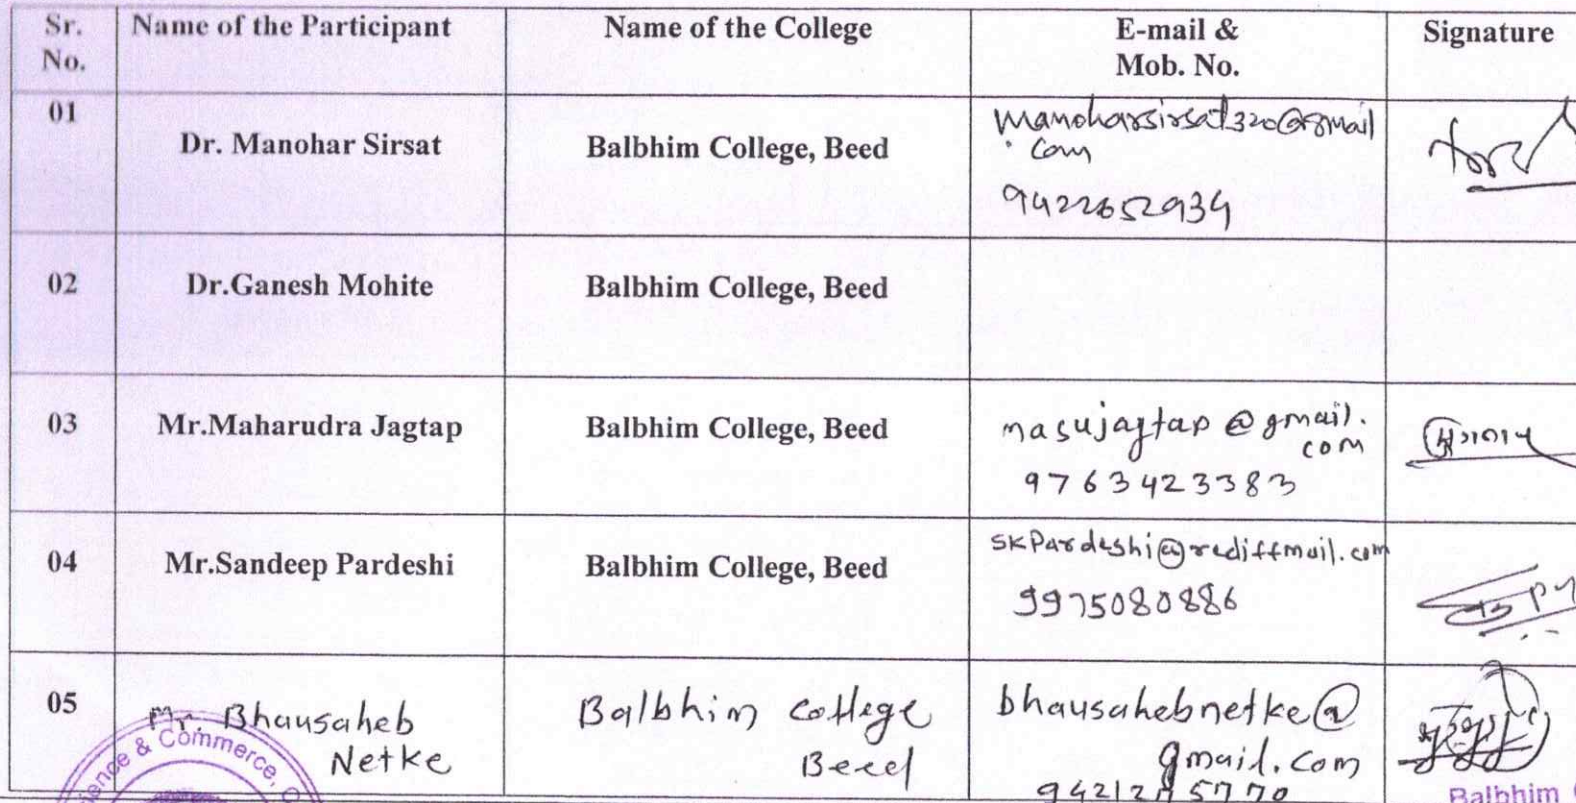 Sr. No. Name of the Participant Name of the College E-mail & Mob. No. Signature
01 Dr. Manohar Sirsat Balbhim College, Beed manoharsirsat320@gmail
.com
9422652934
02 Dr.Ganesh Mohite Balbhim College, Beed
03 Mr.Maharudra Jagtap Balbhim College, Beed masujagtap@gmail.
com
9763423383
04 Mr.Sandeep Pardeshi Balbhim College, Beed skpardeshi@rediffmail.com
9975080886
05 Mr. Bhausaheb Balbhim College bhausahebnetke@
Netke Beed gmail.com
& Commerce,
Balbhim